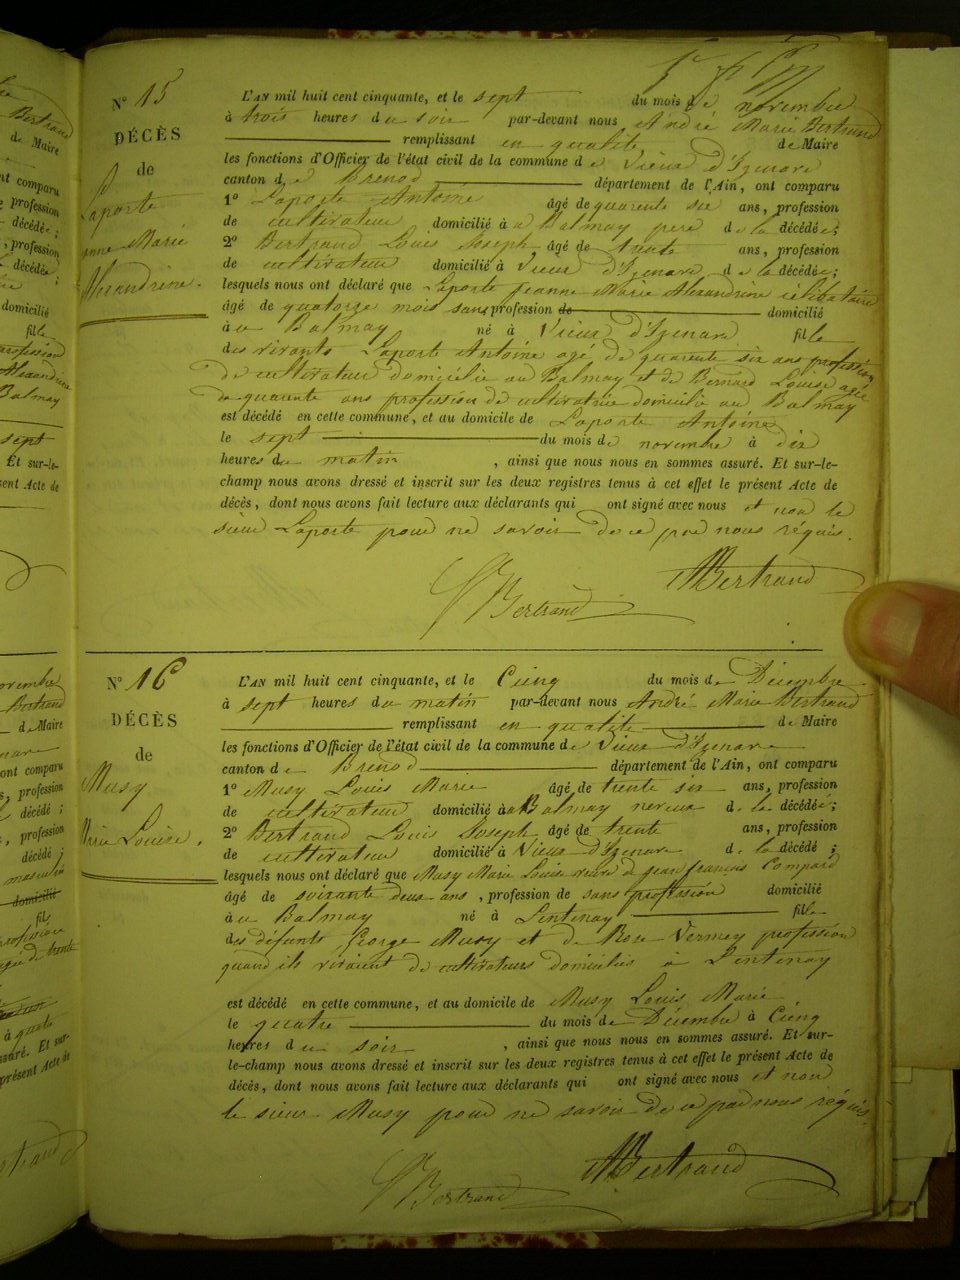 N° 15
DÉCÈS
de
Laporte
Jeanne Marie
Alexandrine.
L'AN mil huit cent cinquante, et le sept du mois de novembre
à trois heures du soir par-devant nous André Marie Bertrand
remplissant en qualité de Maire
les fonctions d'Officier de l'état civil de la commune de Vieux d'Izenave
canton de Brenod département de l'Ain, ont comparu
1° Laporte Antoine âgé de quarente six ans, profession
de cultivateur domicilié à au Balmay pere de la décédée;
2° Bertrand Louis Joseph âgé de trente ans, profession
de cultivateur domicilié à Vieux d'Izenave de la décédée;
lesquels nous ont déclaré que Laporte Jeanne Marie Alexandrine célibataire
âgé de quatorze mois sans profession de domicilié
à au Balmay né à Vieux d'Izenave fille
des vivants Laporte Antoine agé de quarente six ans profession
de cultivateur domicilié au Balmay et de Bernard Louise agée
de quarente ans profession de cultivatrice domicilié au Balmay
est décédé en cette commune, et au domicile de Laporte Antoine
le sept du mois de novembre à dix
heures du matin, ainsi que nous nous en sommes assuré. Et sur-le-
champ nous avons dressé et inscrit sur les deux registres tenus à cet effet le présent Acte de
décès, dont nous avons fait lecture aux déclarants qui ont signé avec nous et non le
sieur Laporte pour ne savoir de ce par nous réquis.
Bertrand
Bertrand
N° 16
DÉCÈS
de
Musy
Marie Louise.
L'AN mil huit cent cinquante, et le Cinq du mois de Décembre
à sept heures du matin par-devant nous André Marie Bertrand
remplissant en qualité de Maire
les fonctions d'Officier de l'état civil de la commune de Vieux d'Izenave
canton de Brenod département de l'Ain, ont comparu
1° Musy Louis Marie âgé de trente six ans, profession
de cultivateur domicilié à au Balmay neveux de la décédée;
2° Bertrand Louis Joseph âgé de trente ans, profession
de cultivateur domicilié à Vieux d'Izenave de la décédé;
lesquels nous ont déclaré que Musy Marie Louise veuve de jean françois Compard
âgé de soixante deux ans, profession de sans profession domicilié
à au Balmay né à Lentenay fille
des défunts George Musy et de Rose Vermey profession
quand ils vivaient de cultivateurs domiciliés à Lentenay
est décédé en cette commune, et au domicile de Musy Louis Marie
le quatre du mois de Décembre à Cinq
heures du soir, ainsi que nous nous en sommes assuré. Et sur-
le-champ nous avons dressé et inscrit sur les deux registres tenus à cet effet le présent Acte de
décès, dont nous avons fait lecture aux déclarants qui ont signé avec nous et non
le sieur Musy pour ne savoir de ce par nous réquis.
Bertrand
Bertrand